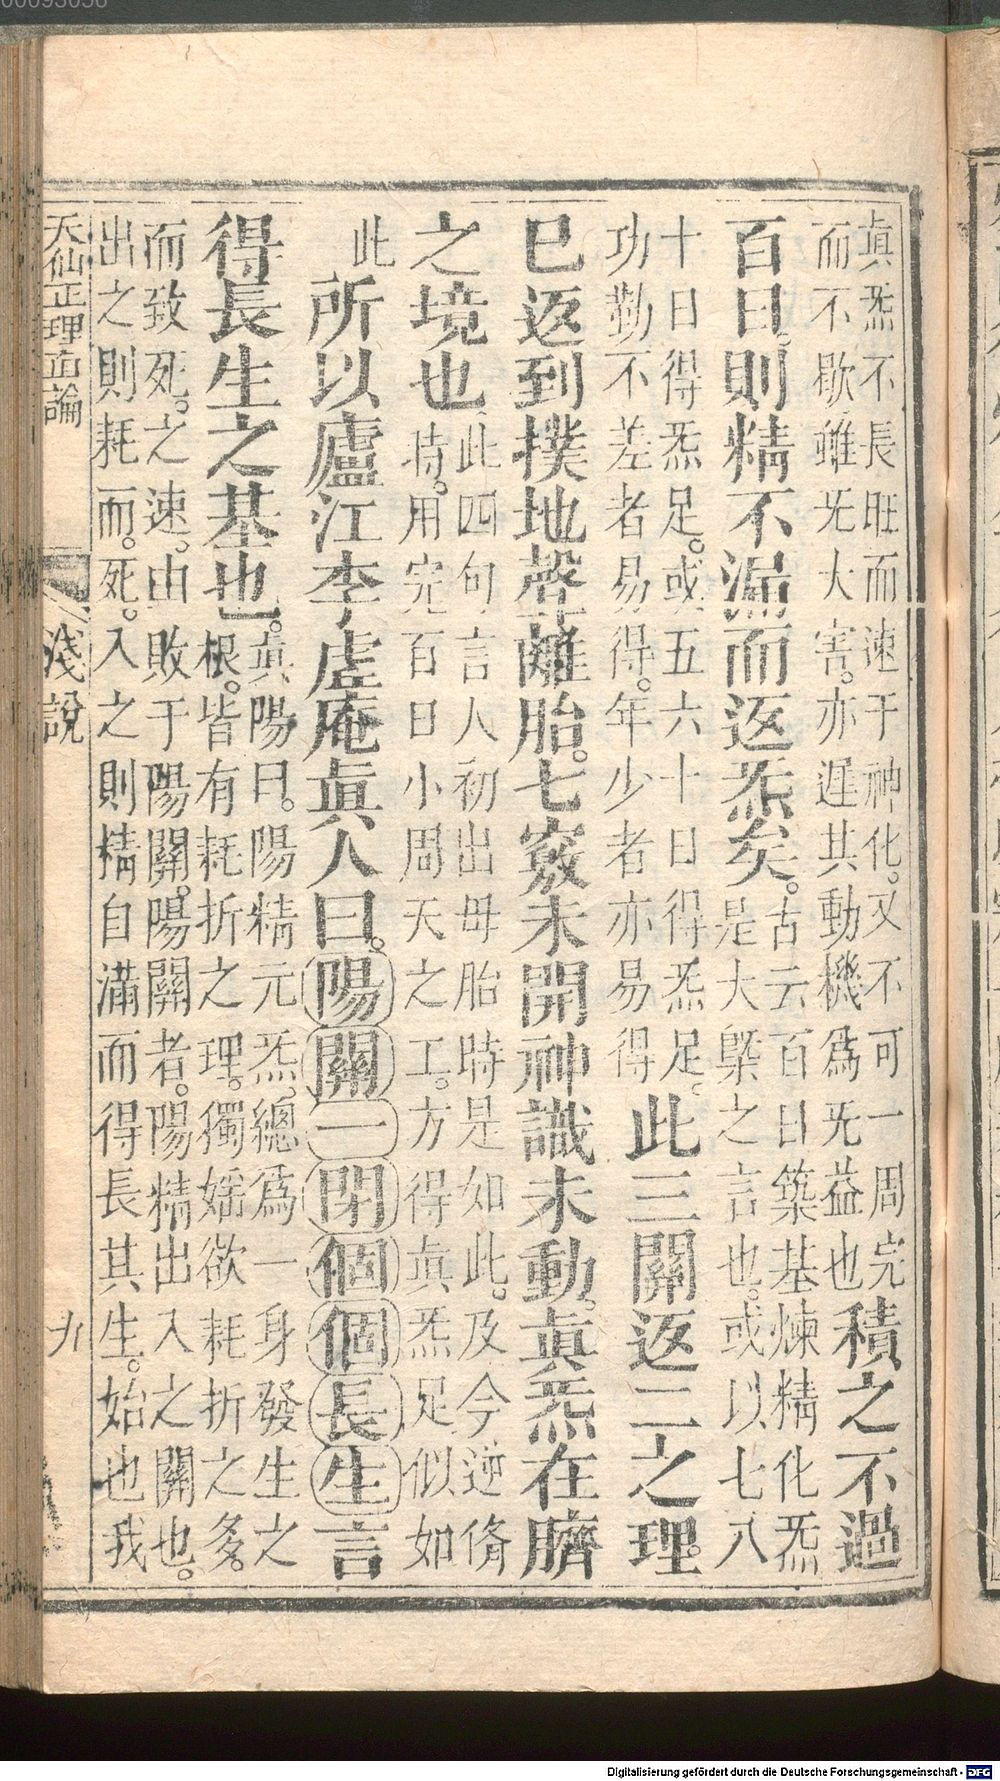 00093036
眞炁不長旺而速于神化。又不可一周完
而不歇雖旡大害。亦遲其動機爲旡益也
積之不過
百日。則精不漏而返炁矣。
古云百日築基煉精化炁
是大槩之言也。或以七八
十日得炁足。或五六十日得炁足。
功勤不差者易得。年少者亦易得
此三關返二之理
已返到撲地聲離胎。七竅未開神識未動。眞炁在臍
之境也
此四句言人初出母胎時是如此。及今逆脩
時。用完百日小周天之工。方得眞炁足似如
此
所以廬江李虛庵眞人曰。陽關一閉個個長生言
得長生之基也。
眞陽曰。陽精元炁。總爲一身發生之
根。皆有耗折之理。獨婬欲耗折之多。
而致死。之速。由敗于陽關。陽關者。陽精出入之關也。
出之則耗而。死。入之則精自滿而得長其生。始也我
天仙正理直論 淺說 九
Digitalisierung gefördert durch die Deutsche Forschungsgemeinschaft - DFG